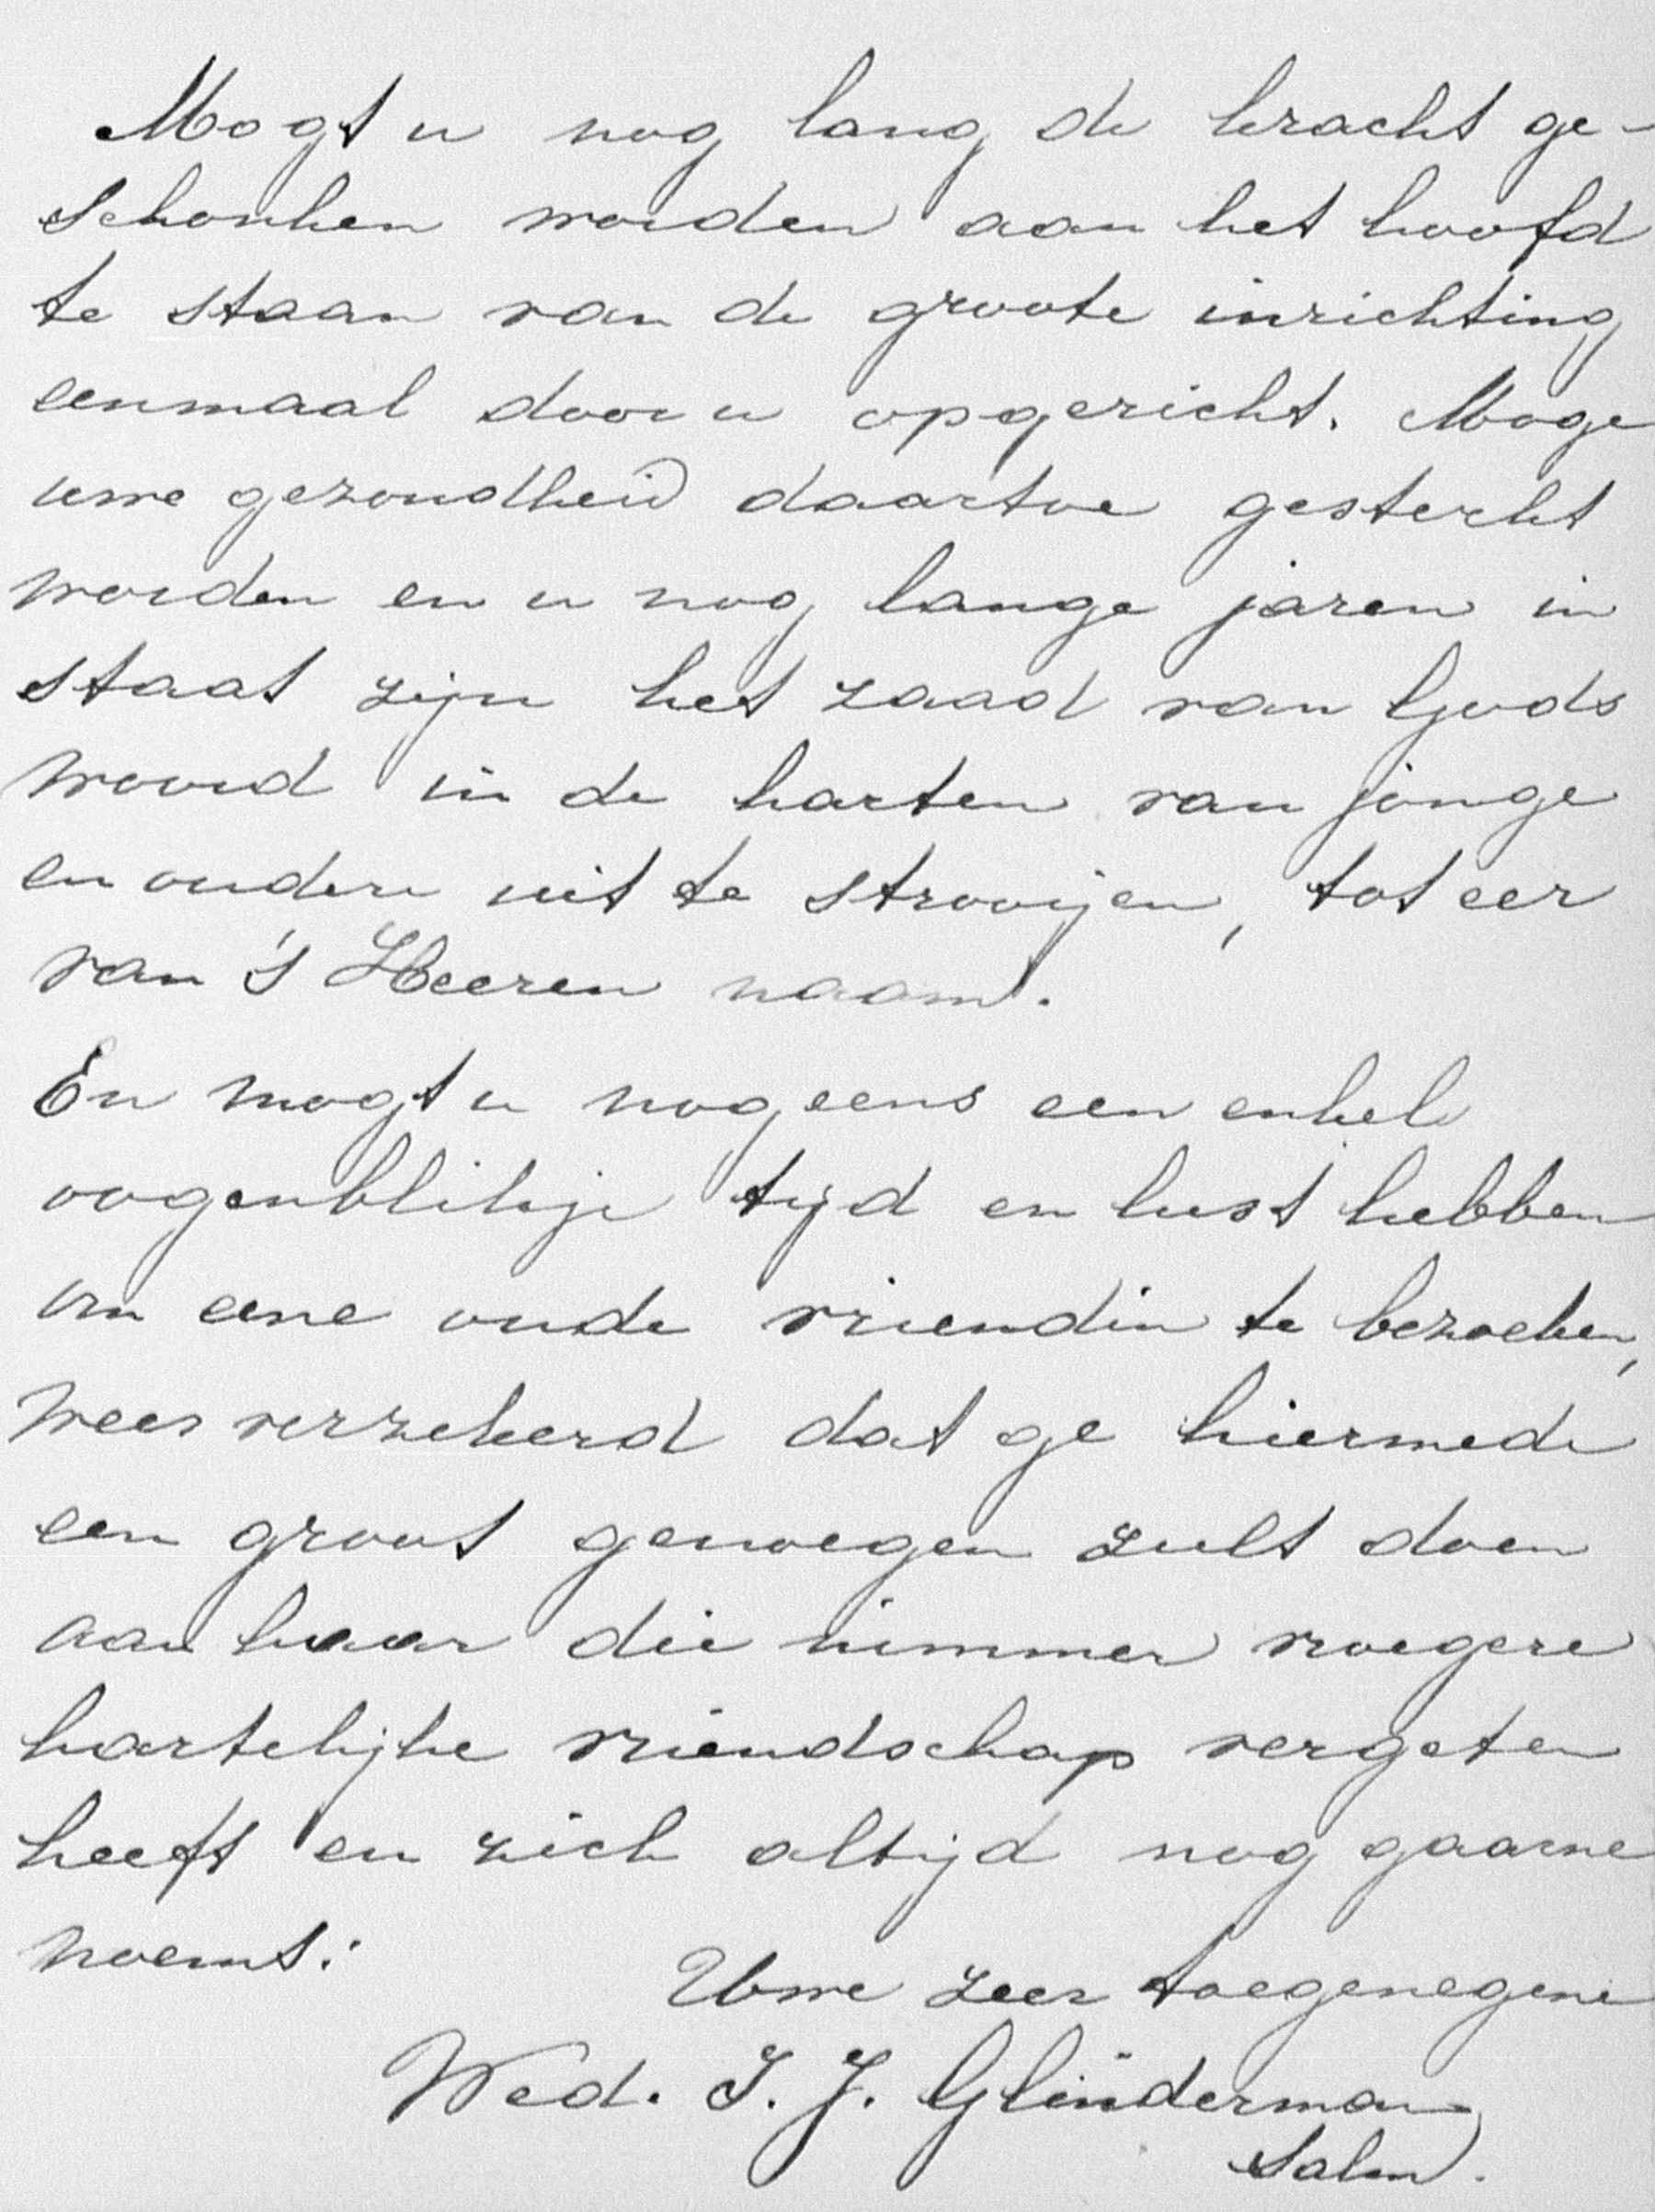 Mogt u nog lang de kracht ge-
schonken worden aan het hoofd
te staan van de groote inrichting
eenmaal door u opgericht. Moge
uwe gezondheid daartoe gesterkt
worden en u nog lange jaren in
staat zijn het zaad van Gods
woord in de harten van jonge
en oudere uit te strooijen, tot eer
van 's Heeren naam.
En mogt u nog eens een enkel
oogenblikje tijd en lust hebben
om eene oude vriendin te bezoeken,
wees verzekerd dat ge hiermede
een groot genoegen zult doen
aan haar die nimmer vroegere
hartelijke vriendschap vergeten
heeft en zich altijd nog gaarne
noemt:
Uwe zeer toegenegene
Wed. J. J. Glinderman
Salm.